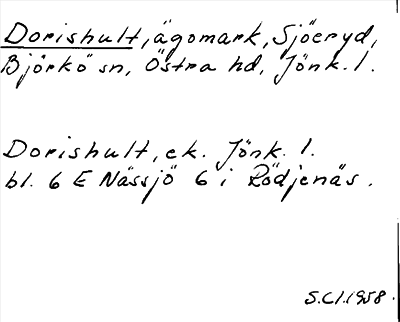 Dorishult, ägomark, Sjöeryd,
Björkö sn, Östra hd, Jönk. l.
Dorishult, ek. Jönk. l.
bl. 6 E Nässjö 6 i Rödjenäs.
S.Cl.1958.